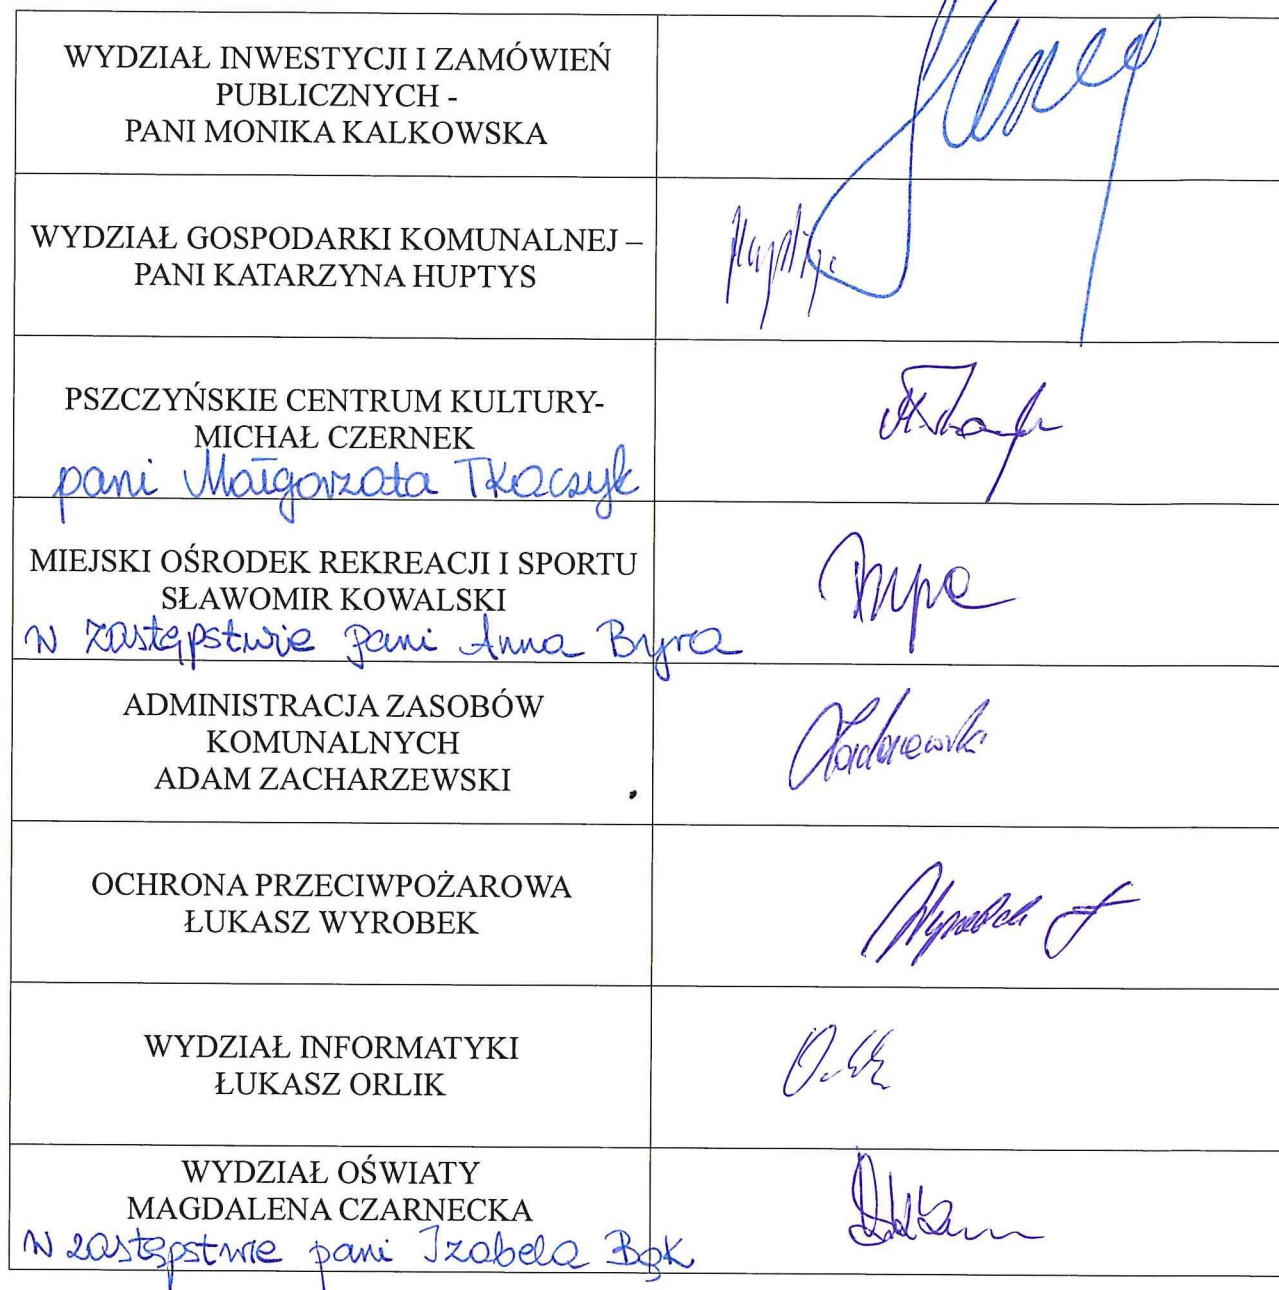 WYDZIAŁ INWESTYCJI I ZAMÓWIEŃ
PUBLICZNYCH -
PANI MONIKA KALKOWSKA
WYDZIAŁ GOSPODARKI KOMUNALNEJ –
PANI KATARZYNA HUPTYS
PSZCZYŃSKIE CENTRUM KULTURY-
MICHAŁ CZERNEK
pani Małgorzata Tkaczyk
MIEJSKI OŚRODEK REKREACJI I SPORTU
SŁAWOMIR KOWALSKI
W zastępstwie pani Anna Byra
ADMINISTRACJA ZASOBÓW
KOMUNALNYCH
ADAM ZACHARZEWSKI
OCHRONA PRZECIWPOŻAROWA
ŁUKASZ WYROBEK
WYDZIAŁ INFORMATYKI
ŁUKASZ ORLIK
WYDZIAŁ OŚWIATY
MAGDALENA CZARNECKA
W zastępstwie pani Izabela Bąk